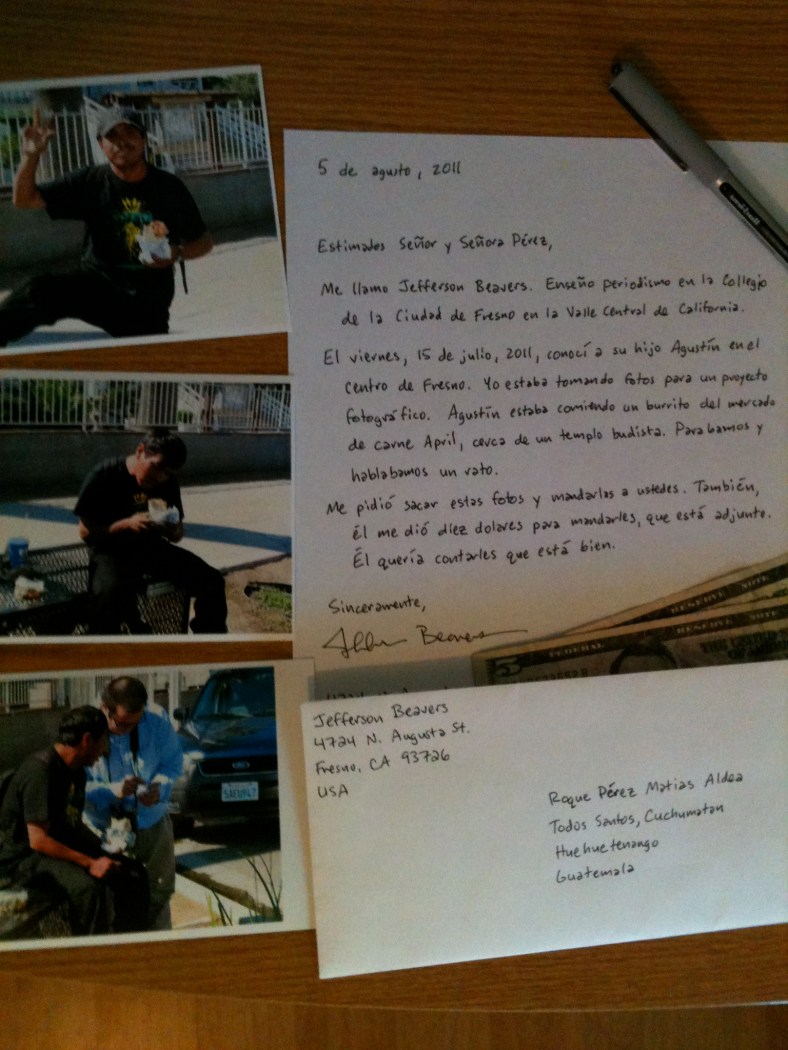 5 de agusto, 2011
Estimados Señor y Señora Pérez,
Me llamo Jefferson Beavers. Enseño periodismo en la Collegio
de la Ciudad de Fresno en la Valle Central de California.
El viernes, 15 de julio, 2011, conocí a su hijo Agustín en el
centro de Fresno. Yo estaba tomando fotos para un proyecto
fotográfico. Agustín estaba comiendo un burrito del mercado
de carne April, cerca de un templo budista. Parabamos y
hablabamos un rato.
Me pidió sacar estas fotos y mandarlas a ustedes. También,
él me dió diez dolares para mandarles, que está adjunto.
Él quería contarles que está bien.
Sinceramente,
Jefferson Beavers
RESERVE NOTE
5 FEDERAL RESERVE NOTE
Jefferson Beavers
4724 N. Augusta St.
Fresno, CA 93726
USA
Roque Pérez Matias Aldea
Todos Santos, Cuchumatan
Huehuetenango
Guatemala